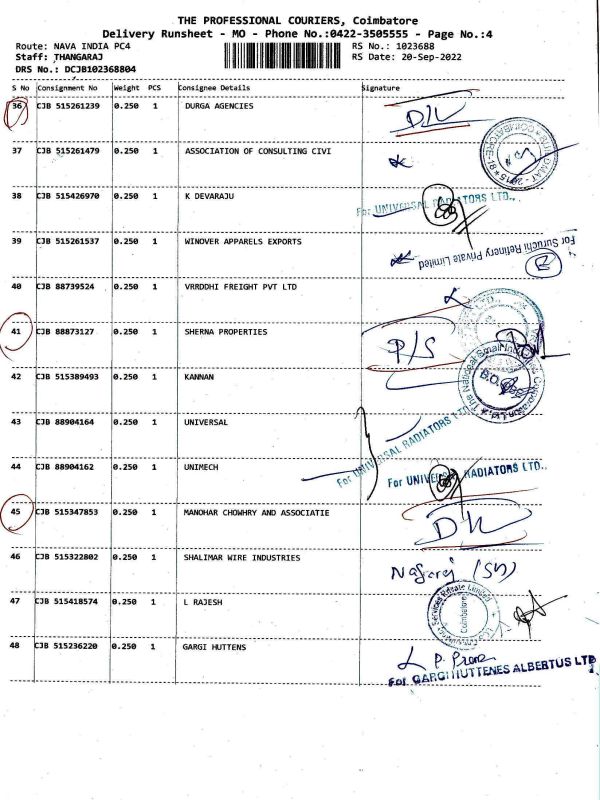 THE PROFESSIONAL COURIERS, Coimbatore
Delivery Runsheet - MO - Phone No.:0422-3505555 - Page No.:4
Route: NAVA INDIA PC4 RS No.: 1023688
Staff: THANGARAJ RS Date: 20-Sep-2022
DRS No.: DCJB102368804
S No Consignment No Weight PCS Consignee Details Signature
36 CJB 515261239 0.250 1 DURGA AGENCIES
37 CJB 515261479 0.250 1 ASSOCIATION OF CONSULTING CIVI
38 CJB 515426970 0.250 1 K DEVARAJU
For UNIVERSAL RADIATORS LTD.,
39 CJB 515261537 0.250 1 WINOVER APPARELS EXPORTS
For Suruchi Refinery Private Limited
B
40 CJB 88739524 0.250 1 VRRDDHI FREIGHT PVT LTD
41 CJB 88873127 0.250 1 SHERNA PROPERTIES P/S
42 CJB 515389493 0.250 1 KANNAN
43 CJB 88904164 0.250 1 UNIVERSAL
For UNIVERSAL RADIATORS LTD
44 CJB 88904162 0.250 1 UNIMECH
For UNIVERSAL RADIATORS LTD.,
45 CJB 515347853 0.250 1 MANOHAR CHOWHRY AND ASSOCIATIE
46 CJB 515322802 0.250 1 SHALIMAR WIRE INDUSTRIES
47 CJB 515418574 0.250 1 L RAJESH
Coimbatore
48 CJB 515236220 0.250 1 GARGI HUTTENS
For GARGI HUTTENES ALBERTUS LTD